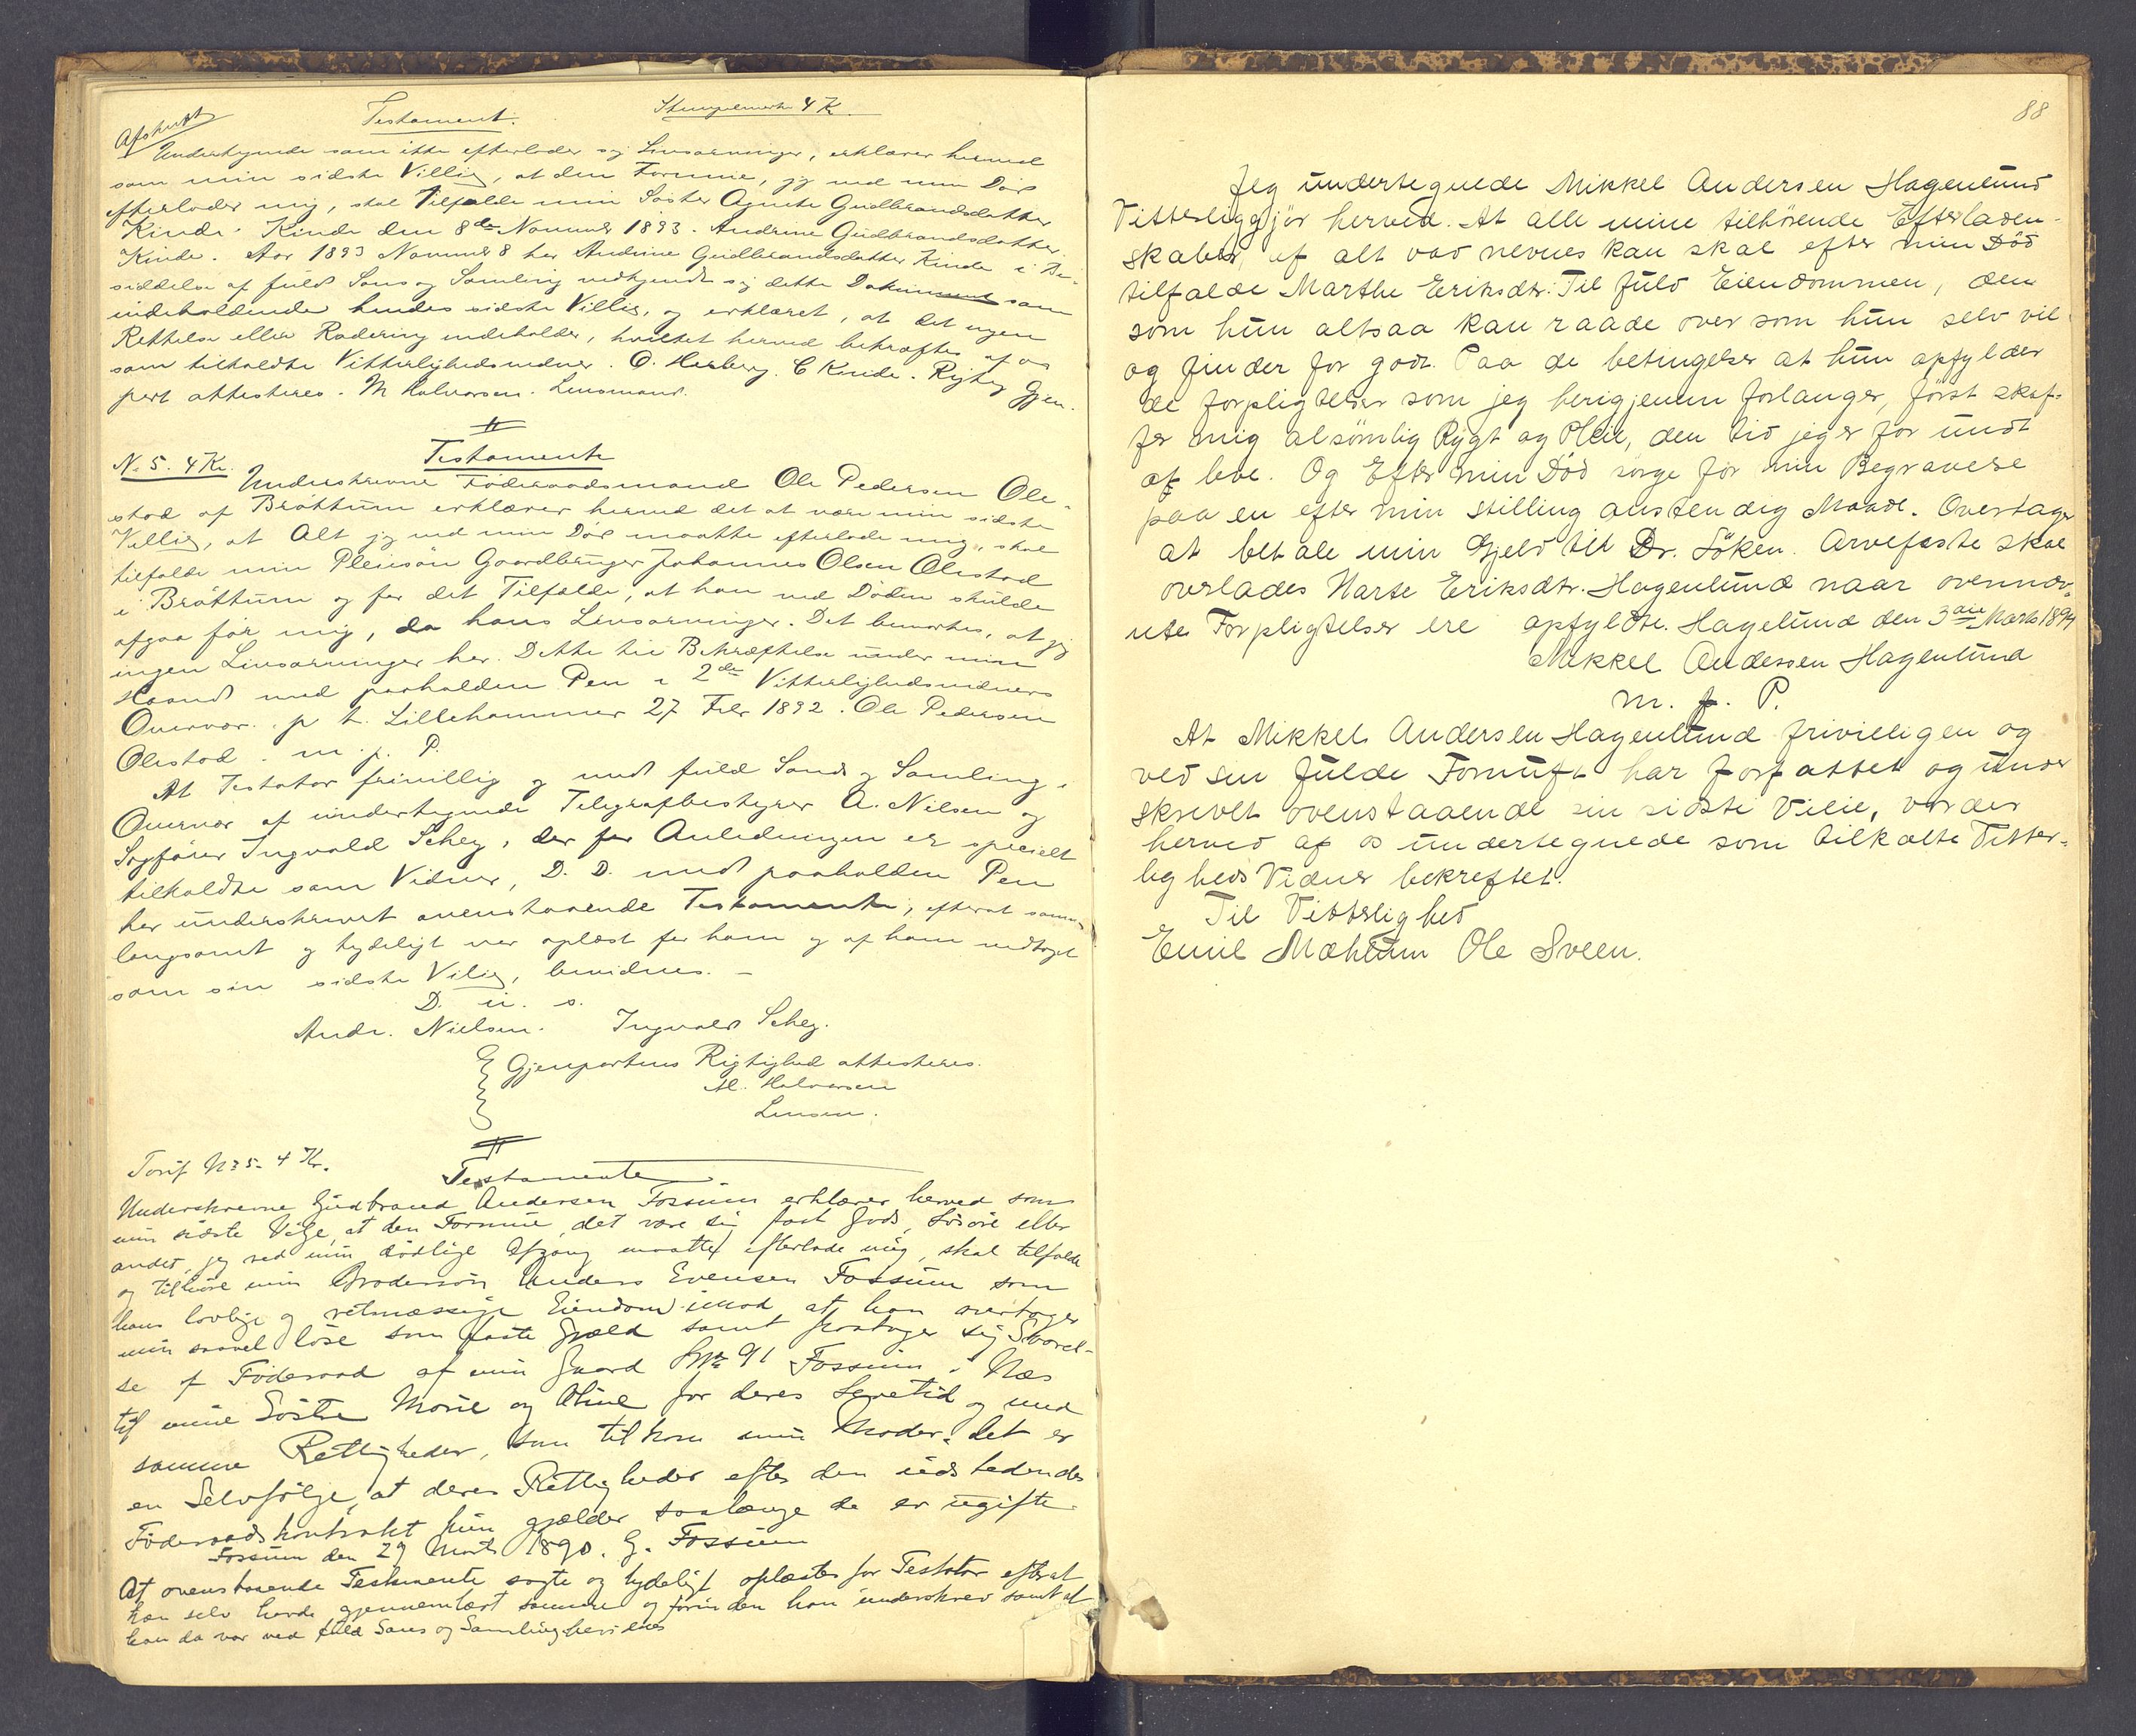 Afskrift
Testament. Stempelmærke 4 K.
Undertegnede som ikke efterlader sig Livsarvinger, erklærer herved
som min sidste Villie, at den Formue, jeg ved min Död
efterlader mig, skal tilfalde min Söster Agnete Gudbrandsdatter
Kinde. Kinde den 8de November 1893. Andrine Gudbrandsdatter
Kinde. Aar 1893 November 8 har Andrine Gudbrandsdatter Kinde i Be-
siddelse af fuld Sans og Samling vedkjendt sig dette Dokument som
indeholdende hendes sidste Villie, og erklæret, at det ingen
Rettelse eller Radering indeholder, hvilket herved bekræftes af os
som tilkaldte Vitterlighedsvidner. O. Herberg. C Kinde. Rigtig Gjen-
part attesteres. M Halvorsen. Lensmand.
Testamente
No 5. 4 Kr.
Underskrevne Föderaadsmand Ole Pedersen Ole-
stad af Bröttum erklærer herved det at være min sidste
Villie, at Alt jeg ved min Död maatte efterlade mig, skal
tilfalde min Pleiesön Gaardbruger Johannes Olsen Olestad
i Bröttum og for det Tilfælde, at han ved Döden skulde
afgaa för mig, da hans Livsarvinger. Det bemærkes, at jeg
ingen Livsarvinger har. Dette til Bekræftelse under min
Haand med paaholden Pen i 2de Vitterlighedsvidners
Overvær. p t. Lillehammer 27 Febr 1892. Ole Pedersen
Olestad. m. p. P.
At Testator frivillig og med fuld Sands og Samling i
Overvær af undertegnede Telegrafbestyrer A. Nilsen og
Sagförer Ingvald Schey, der for Anledningen er specielt
tilkaldte som Vidner, D. D. med paaholden Pen
har underskrevet ovenstaaende Testamente, efterat samme
langsomt og tydeligt var oplæst for ham og af ham vedtaget
som sin sidste Vilie, bevidnes. –
D. u. s.
Andr. Nielsen. Ingvald Schey.
Gjenpartens Rigtighed attesteres.
M. Halvorsen
Lensm.
Tarif No 5- 4 Kr.
Testamente
Underskrevne Gudbrand Andersen Fossum erklærer herved som
min sidste Vilje, at den Formue, det være sig fast Gods, Lösöre eller
andet, jeg ved min dödlige Afgang maatte efterlade mig, skal tilfalde
og tilhöre min Brodersön Anders Evensen Fossum som
hans lovlige og retmæssige Eiendom imod at han overtager
min saavel löse som faste Gjæld samt paatager sig Svarel-
se af Föderaad af min Gaard No 91 Fossum i Næs
til mine Söstre Marie og Oline for deres Levetid og med
samme Rettigheder, som tilkom min Moder. Det er
en Selvfölge, at deres Rettigheder efter den udstedende
Föderaadskontrakt kun gjælder saalænge de er ugifte.
Fossum den 29 Marts 1890. G. Fossum
At ovenstaaende Testamente sagte og tydeligt oplæstes for Testator efterat
han selv havde gjennemlæst samme og förinden han underskrev samt at
han da var ved fuld Sans og Samling bevidnes
88
Jeg undertegnede Mikkel Andersen Hagenlund
Vitterliggjör herved. At alle mine tilhörende Efterladen-
skaber, af alt vad nevnes kan skal efter min Död
tilfalde Marthe Eriksdtr. Til fuld Eiendommen, den
som hun altsaa kan raade over som hun selv vil
og finder for godt. Paa de betingelser at hun opfylder
de forpligtelser som jeg herigjenem forlanger, först skaf-
fer mig alsömlig Rygt og Pleie, den tid jeg er for undt
at leve. Og Efter min Död sörge for min Begravelse
paa en efter min Stilling anstendig Maade. Overtager
at betale min Gjeld til Dr. Söken. Arvefæste skal
overlades Marte Eriksdtr. Hagenlund naar ovennæv-
nte Forpligtelser ere opfyldte. Hagelund den 3die Marts 1894
Mikkel Andersen Hagenlund
m. f. P.
At Mikkel Andersen Hagenlund frivilligen og
ved sin fulde Fornuft har forfattet og under
skrevet ovenstaaende sin sidste Vilie, vorder
herved af os undertegnede som tilkalte Vitter-
ligheds Vidner bekreftet.
Til Vitterlighed
Emil Mæhlum Ole Sveen.